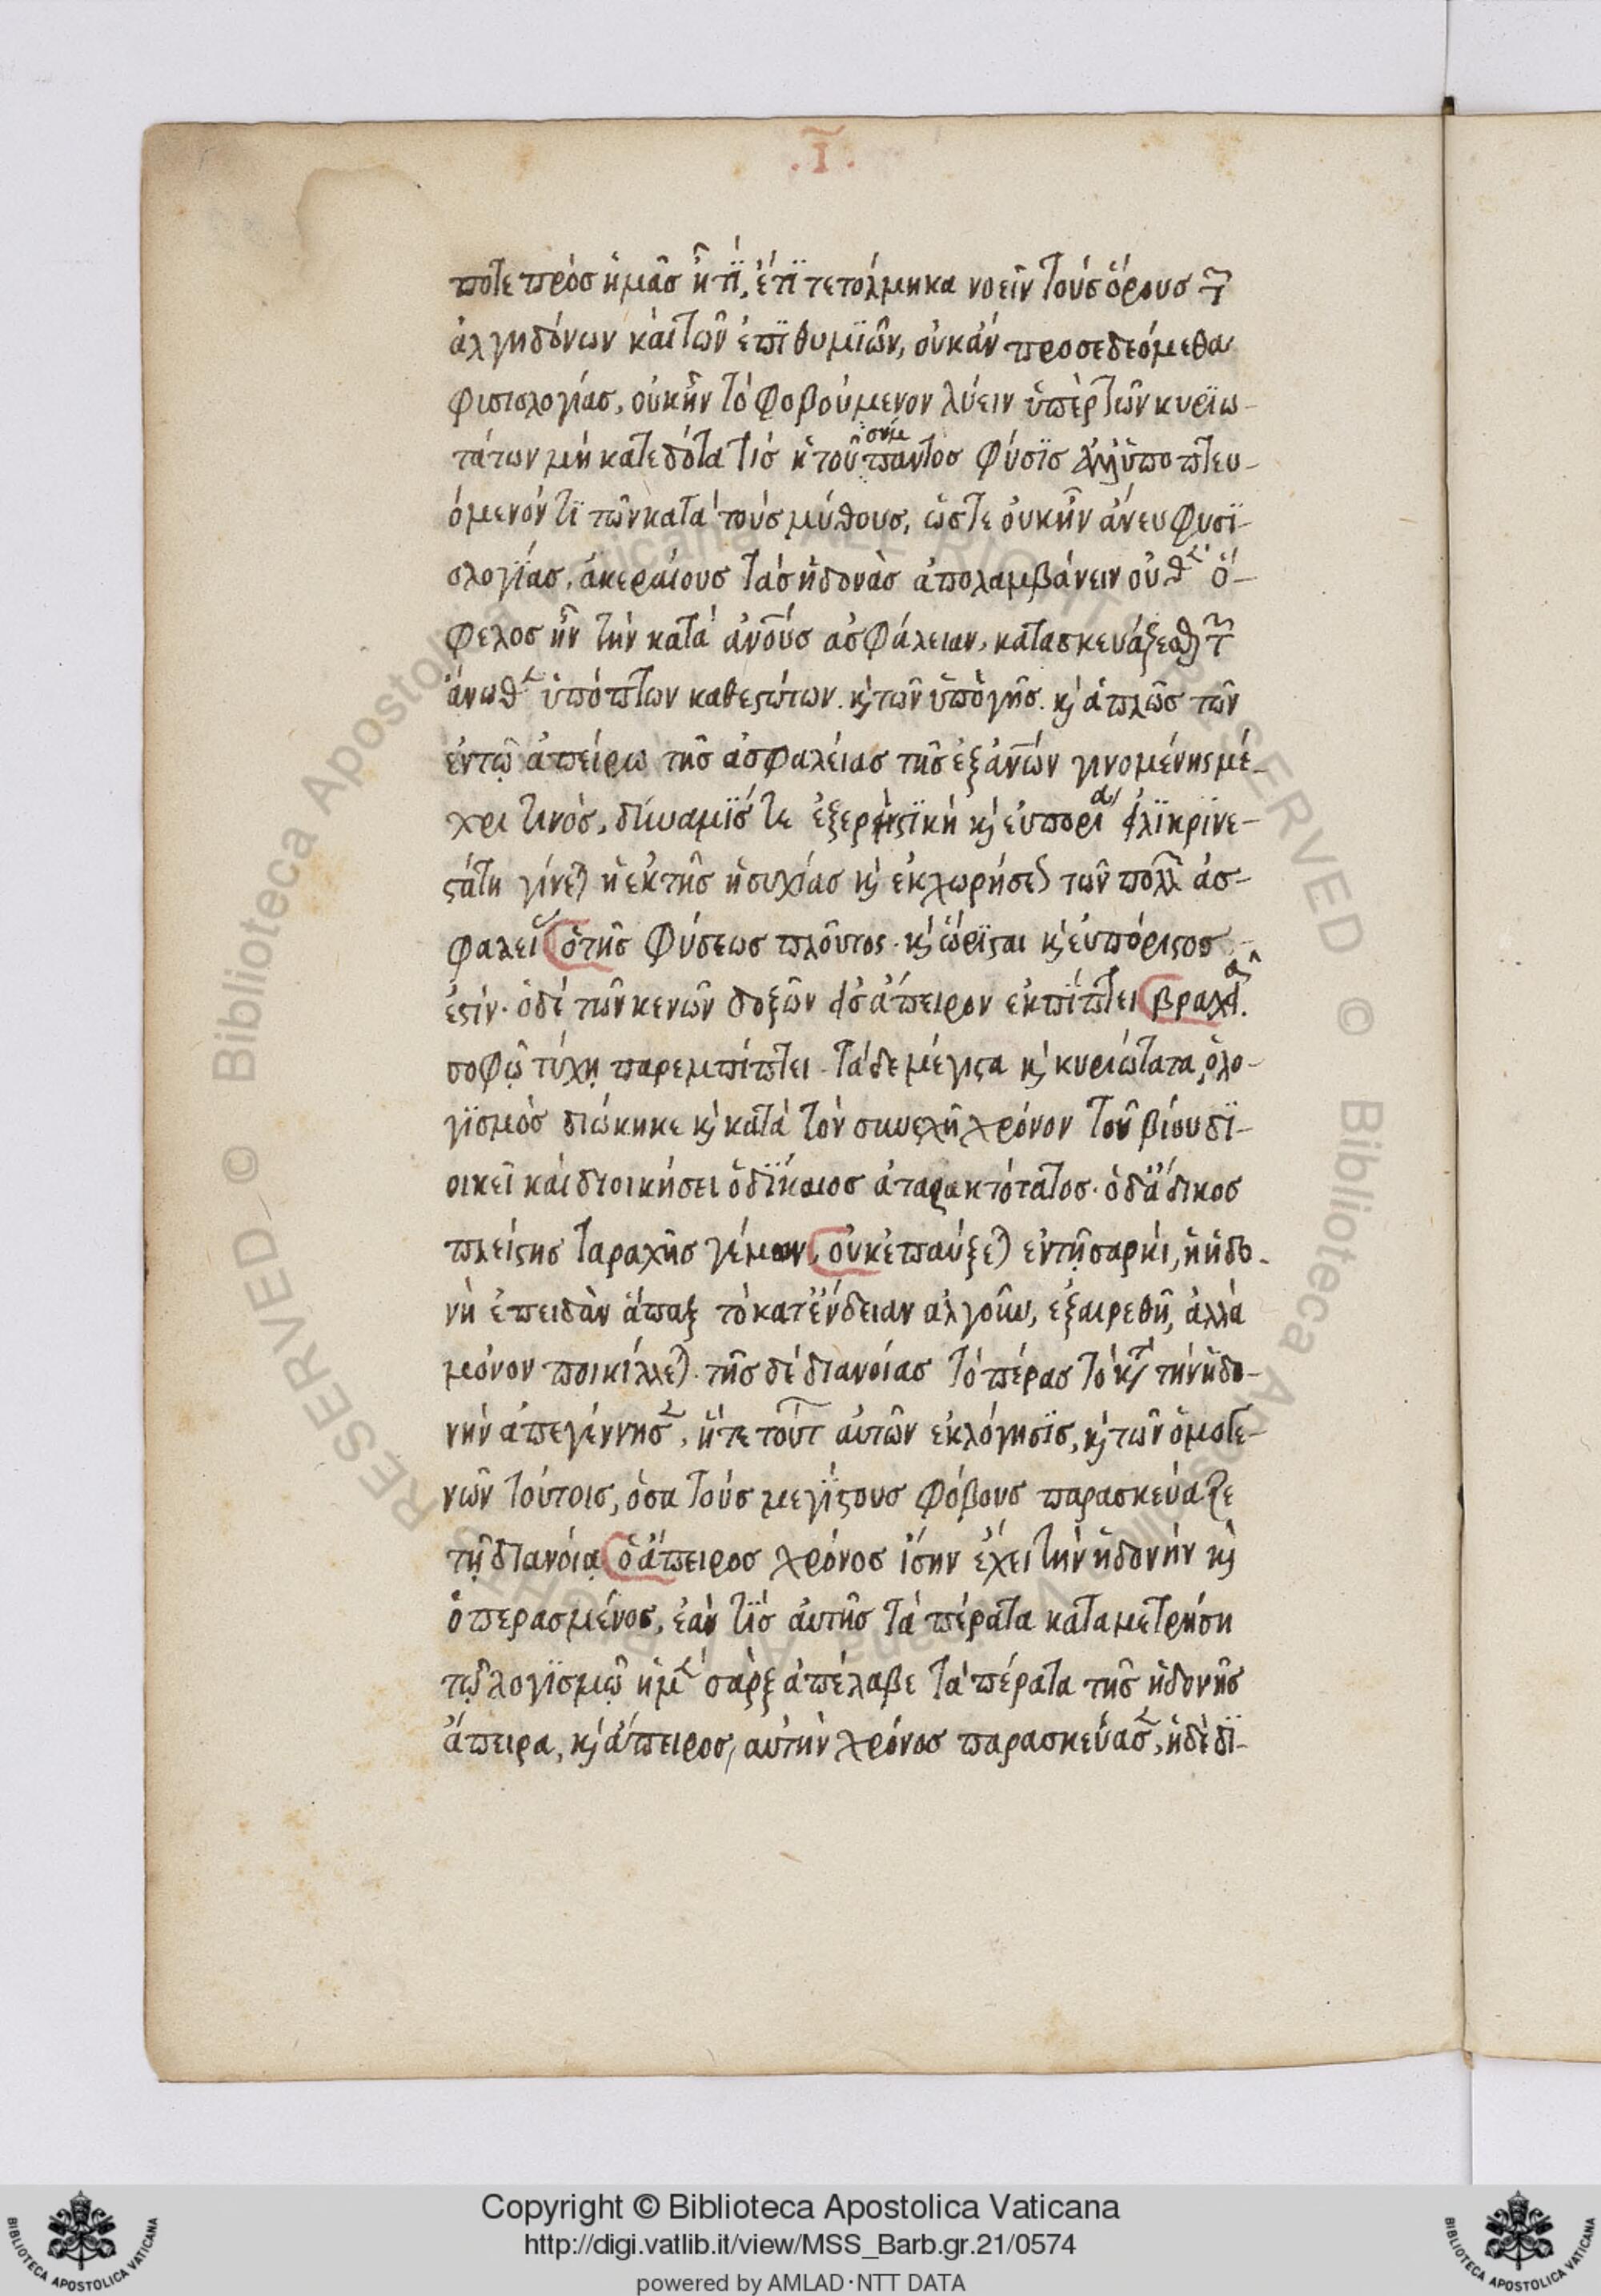 .ῑ.
ποτε πρὸς ἡμᾶς ἦ τί, ἔτι τετόλμηκα νοεῖν τοὺς ὅρους τ͂
ἀλγηδόνων καὶ τῶν ἐπϊθυμϊῶν, οὐκ ἂν προσεδεόμεθα
φισιολογίας, οὐκ ἦν τὸ φοβούμενον λύειν ὑπὲρ τῶν κυρϊω-
τάτων μὴ κατεδότα τίς ἡ τοῦ σύμ παντος φύσϊς ὑποπτευ-
όμενόν τι τῶν κατὰ τοὺς μύθους, ὥστε οὐκ ἦν ἄνευ φυσϊ-
ολογίας, ἀκεραίους τὰς ἡδονὰς ἀπολαμβάνειν οὐθ ὄ-
φελος ἦν τὴν κατὰ ἀνους ἀσφάλειαν, κατασκευάζεσθ τ͂
ἄνωθ ὑπόπτων καθεςώτων. κ τῶν ὑπὸ γῆς. κ ἁπλῶς τῶν
ἐν τῷ ἀπείρω τῆς ἀσφαλείας τῆς ἐξ ἀνων γινομένης μέ-
χρι τινὸς, δύναμΐς τε κ εὐπορί
ςάτη γίνε) ἡ ἐκ τῆς ἡσυχίας κ ἐκχωρήσε τῶν πολλ ἀσ-
φαλει ὁ τῆς φύσεως πλοῦτος. κ ὥρϊςαι κ εὐπόριςος
ἐςίν. ὁ δὲ τῶν κενῶν δοξῶν εἰς ἄπειρον ἐκπίπτει βραχ
σοφῷ τύχη παρεμπίπτει. τὰ δὲ μέγιςα κ κυριώτατα, ὁ λο-
γϊσμὸς διώκηκε κ κατὰ τὸν συνεχῆ χρόνον τοῦ βίου δϊ-
οικεῖ καὶ διοικήσει ὁ δΐκαιος ἀταρακτότατος. ὁ δ' ἄδικος
πλείςης ταραχῆς γέμων, οὐκ ἐπαύξε) ἐν τῇ σαρκὶ, ἡ ἡδο-
νὴ ἐπειδὰν ἅπαξ τὸ κατ ἔνδειαν ἀλγοῦν, ἐξαιρεθῇ, ἀλλὰ
μόνον ποικίλλε). τῆς δὲ διανοίας τὸ πέρας τὸ κτ τὴν ἡδο-
νὴν ἀπεγέννησ, ἥτε τούτ αὐτῶν ἐκλόγησϊς, κ τῶν ὁμοτε-
νῶν τούτοις, ὅσα τοὺς μεγΐςους φόβους παρασκεύαζε
τῇ διανοίᾳ ὁ ἄπειρος χρόνος ἴσην ἔχει τὴν ἡδονὴν κ
ὁ περασμένος, ἐάν τϊς αὐτῆς τὰ πέρατα καταμετρήση
τῷ λογϊσμῷ ἡ μ σὰρξ ἀπέλαβε τὰ πέρατα τῆς ἡδονῆς
ἄπειρα, κ ἄπειρος, αὐτὴν χρόνος παρασκεύασ, ἡ δὲ δϊ-
Copyright © Biblioteca Apostolica Vaticana
http://digi.vatlib.it/view/MSS_Barb.gr.21/0574
powered by AMLAD·NTT DATA